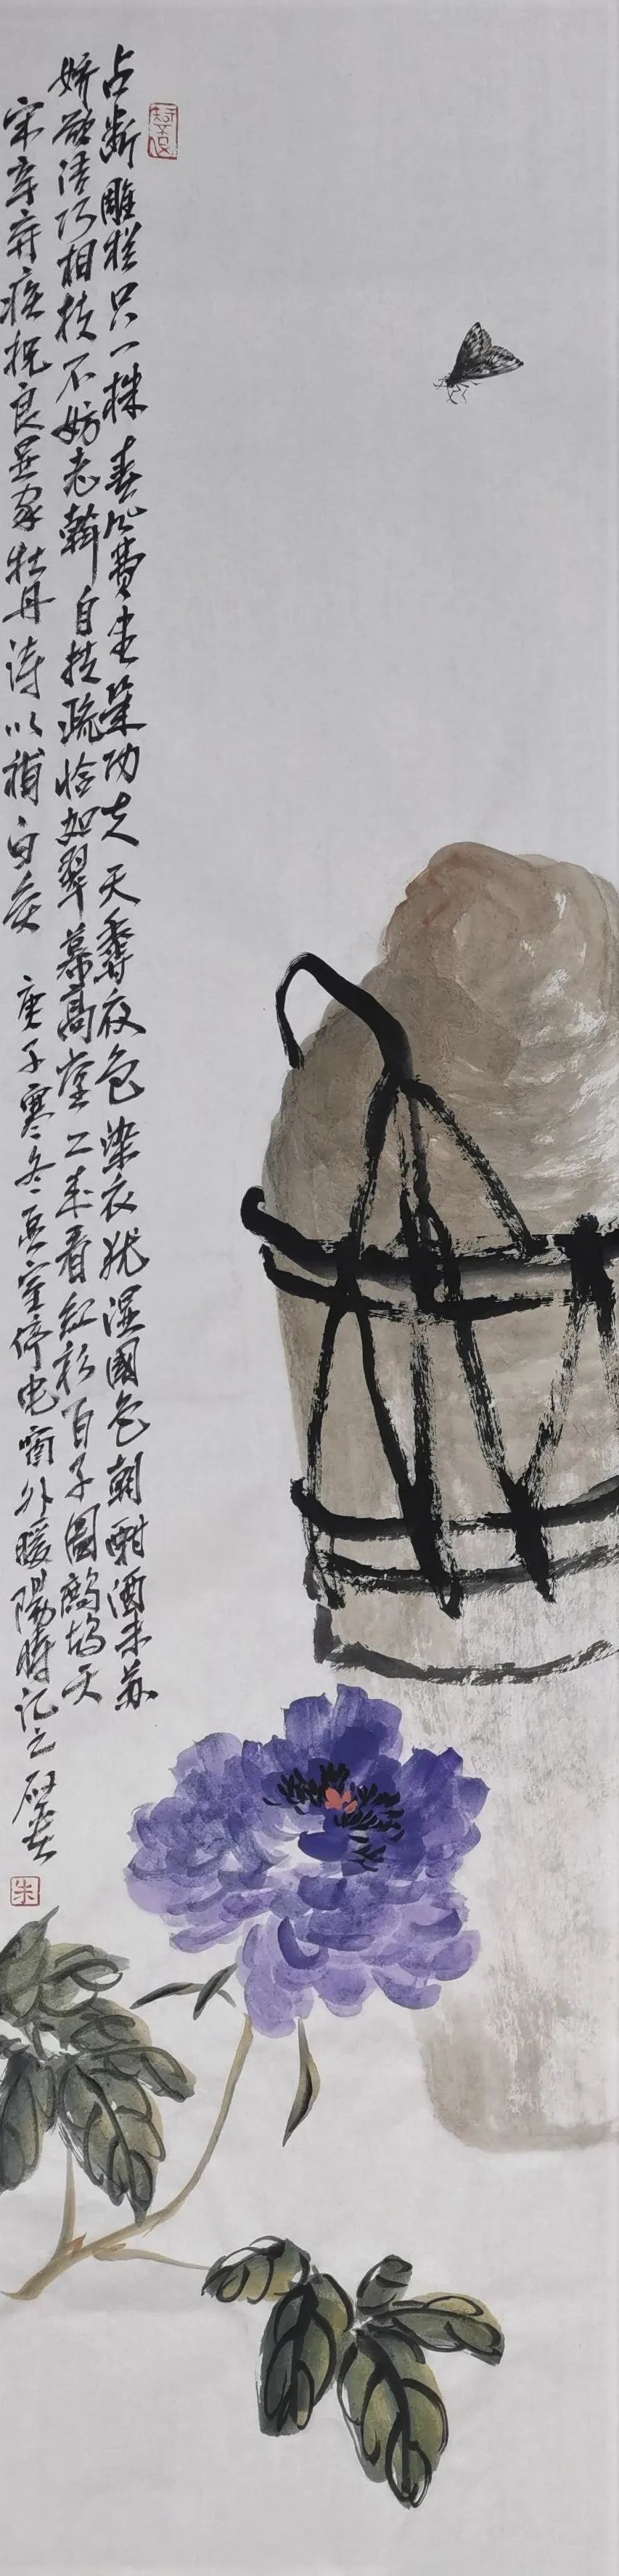 知不足
占断雕栏只一株春风费尽功夫天香夜色染衣犹湿國色朝酣酒未苏
娇欲语巧相扶不妨老幹自扶疏恰如翠幕高堂上来看红衫百子圖鹧鸪天
宋辛弃疾祝良显家牡丹诗以補白矣 庚子寒冬画室停电窗外暖陽時记之
朱